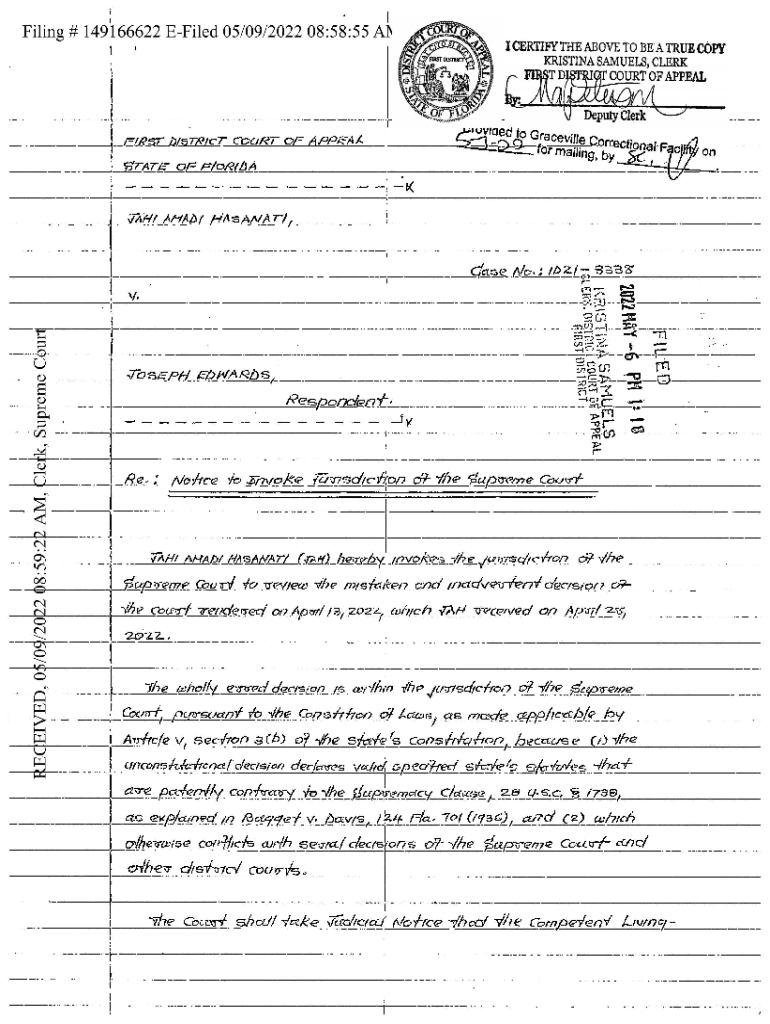 Filing # 149166622 E-Filed 05/09/2022 08:58:55 AM
DISTRICT COURT OF APPEAL
FIRST DISTRICT
STATE OF FLORIDA
I CERTIFY THE ABOVE TO BE A TRUE COPY
KRISTINA SAMUELS, CLERK
FIRST DISTRICT COURT OF APPEAL
By:
Deputy Clerk
Provided to Graceville Correctional Facility on
for mailing, by
FIRST DISTRICT COURT OF APPEAL
STATE OF FLORIDA
JAHI AHADI HASANATI,
Case No.: 1D21-3338
v.
FILED
2022 MAY -6 PM 1:18
KRISTINA SAMUELS
CLERK, DISTRICT COURT OF APPEAL
FIRST DISTRICT
JOSEPH EDWARDS,
Respondent.
RECEIVED, 05/09/2022 08:59:22 AM, Clerk, Supreme Court
Re.: Notice to Invoke Jurisdiction of the Supreme Court
JAHI AHADI HASANATI (JAH) hereby invokes the jurisdiction of the
Supreme Court to review the mistaken and inadvertent decision of
the court rendered on April 12, 2022, which JAH received on April 28,
2022.
The wholly erred decision is within the jurisdiction of the Supreme
Court, pursuant to the Constition of Laws, as made applicable by
Article V, section 3(b) of the state's constitution, because (1) the
unconstitutional decision declares valid specified state's statutes that
are patently contrary to the Supremacy Clause, 28 U.S.C. § 1738,
as explained in Bagget v. Davis, 124 Fla. 701 (1936), and (2) which
otherwise conflicts with serial decisions of the Supreme Court and
other district courts.
The Court shall take Judicial Notice that the Competent Living-